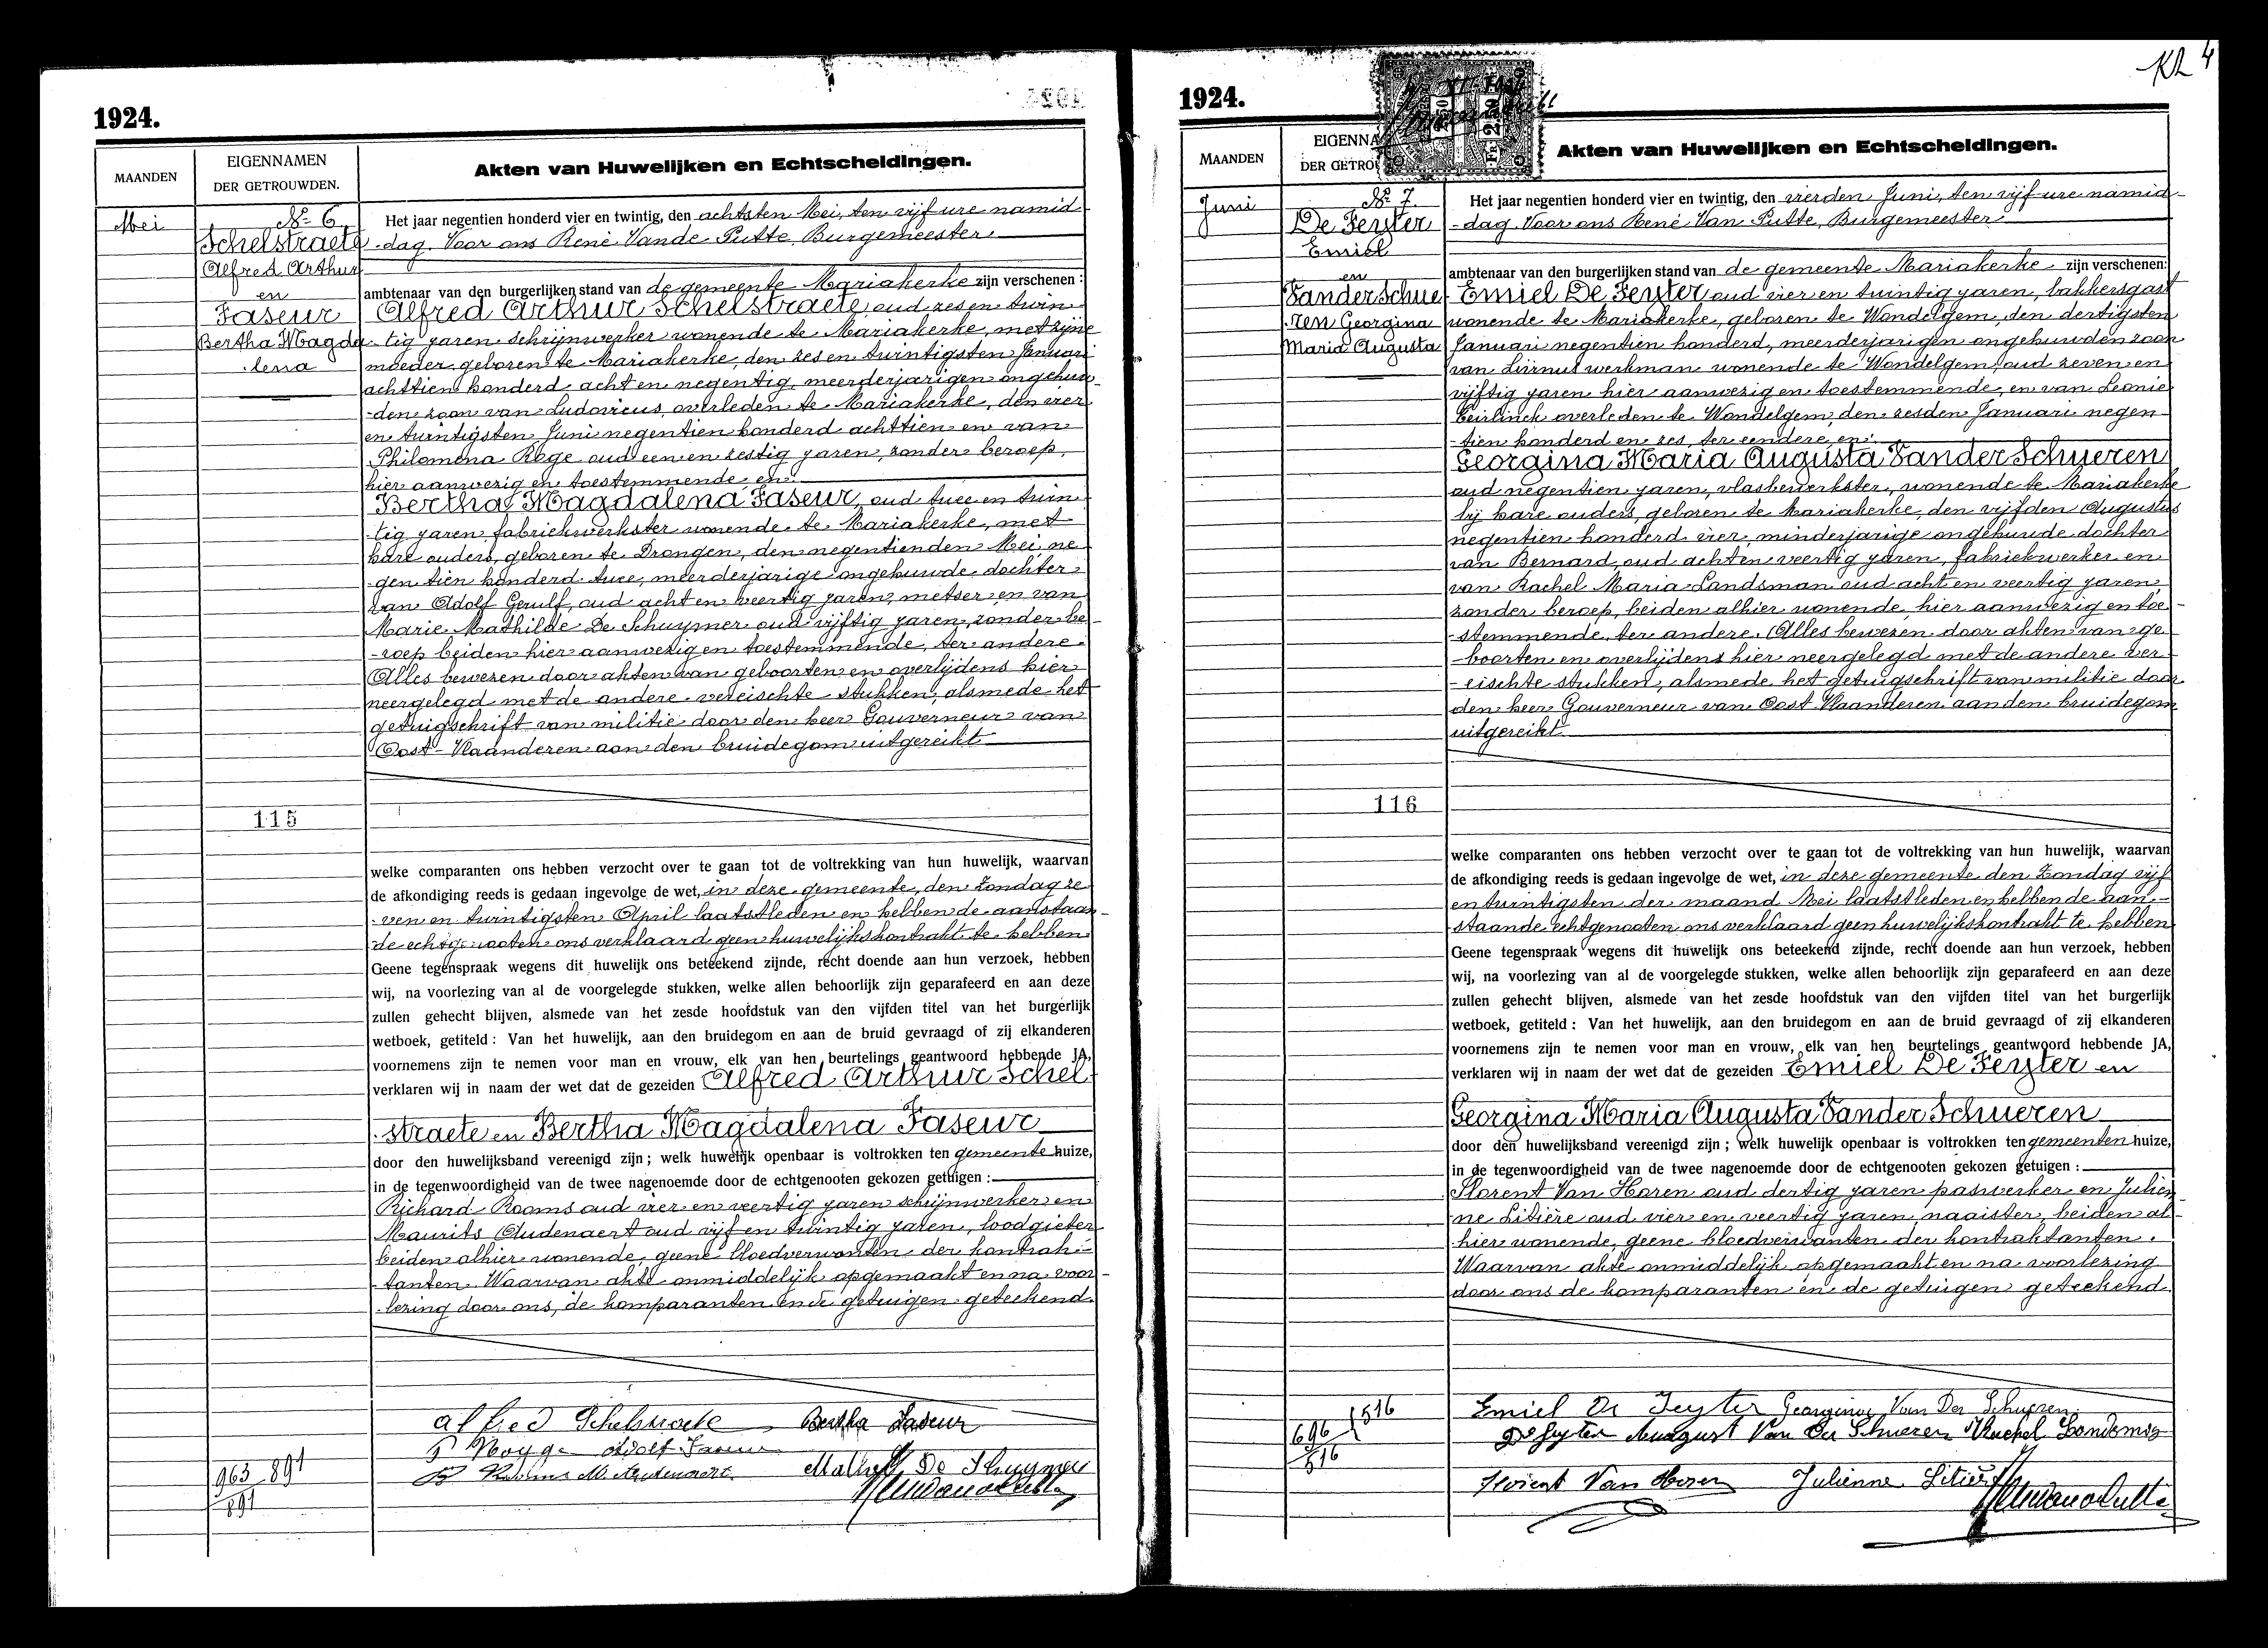 1924.
MAANDEN
EIGENNAMEN
DER GETROUWDEN.
Akten van Huwelijken en Echtscheidingen.
Mei
No 6
Schelstraete
Alfred Arthur
en
Faseur
Bertha Magda
-lena
115
963 891
891
Het jaar negentien honderd vier en twintig, den achtsten Mei, ten vijf ure namid-
-dag. Voor ons René Vande Putte, Burgemeester
ambtenaar van den burgerlijken stand van de gemeente Mariakerke zijn verschenen :
Alfred Arthur Schelstraete, oud zes en twin-
-tig jaren schrijnwerker wonende te Mariakerke, met zijne
moeder, geboren te Mariakerke, den zes en twintigsten Januari
achttien honderd acht en negentig, meerderjarigen ongehuw-
-den zoon van Ludovicus, overleden te Mariakerke, den vier
en twintigsten Juni negentien honderd achttien en van
Philomena Roge oud een en zestig jaren, zonder beroep,
hier aanwezig en toestemmende, en
Bertha Magdalena Faseur, oud twee en twin-
-tig jaren, fabriekwerkster wonende te Mariakerke, met
hare ouders, geboren te Drongen, den negentienden Mei ne-
-gentien honderd twee, meerderjarige ongehuwde dochter
van Adolf Gerulf, oud acht en veertig jaren, metser en van
Marie Mathilde De Schuymer oud vijftig jaren, zonder be-
-roep beiden hier aanwezig en toestemmende, ter andere.
Alles bewezen door akten van geboorten en overlijdens hier
neergelegd met de andere vereischte stukken, alsmede het
getuigschrift van militie door den heer Gouverneur van
Oost-Vlaanderen aan den bruidegom uitgereikt
welke comparanten ons hebben verzocht over te gaan tot de voltrekking van hun huwelijk, waarvan
de afkondiging reeds is gedaan ingevolge de wet, in deze gemeente, den Zondag ze-
-ven en twintigsten April laatstleden en hebben de aanstaan-
-de echtgenooten ons verklaard geen huwelijkskontrakt te hebben
Geene tegenspraak wegens dit huwelijk ons beteekend zijnde, recht doende aan hun verzoek, hebben
wij, na voorlezing van al de voorgelegde stukken, welke allen behoorlijk zijn geparafeerd en aan deze
zullen gehecht blijven, alsmede van het zesde hoofdstuk van den vijfden titel van het burgerlijk
wetboek, getiteld : Van het huwelijk, aan den bruidegom en aan de bruid gevraagd of zij elkanderen
voornemens zijn te nemen voor man en vrouw, elk van hen beurtelings geantwoord hebbende JA,
verklaren wij in naam der wet dat de gezeiden Alfred Arthur Schel-
-straete en Bertha Magdalena Faseur
door den huwelijksband vereenigd zijn ; welk huwelijk openbaar is voltrokken ten gemeente huize,
in de tegenwoordigheid van de twee nagenoemde door de echtgenooten gekozen getuigen :
Richard Rooms oud vier en veertig jaren schrijnwerker en
Maurits Audenaert oud vijf en twintig jaren, loodgieter
beiden alhier wonende, geene bloedverwanten der kontrak-
-tanten. Waarvan akte onmiddelijk opgemaakt en na voor-
-lezing door ons, de komparanten en de getuigen geteekend.
Alfred Schelstraete Bertha Faseur
Adolf Faseur
De Schuymer
1924.
MAANDEN
Akten van Huwelijken en Echtscheidingen.
Juni
No 7.
De Feyter
Emiel
en
Vander Schue-
-ren Georgina
Maria Augusta
116
1516
696
516
Het jaar negentien honderd vier en twintig, den vierden Juni, ten vijf ure namid-
-dag. Voor ons René Van Putte, Burgemeester
ambtenaar van den burgerlijken stand van de gemeente Mariakerke zijn verschenen:
Emiel De Feyter oud vier en twintig jaren, bakkersgast
wonende te Mariakerke, geboren te Wondelgem, den dertigsten
Januari negentien honderd, meerderjarigen ongehuwden zoon
van Livinus werkman wonende te Wondelgem, oud zeven en
vijftig jaren hier aanwezig en toestemmende, en van Leonie
Geirlinck overleden te Wondelgem, den zesden Januari negen-
-tien honderd en zes, ter eendere, en
Georgina Maria Augusta Vander Schueren
oud negentien jaren, vlasbewerkster, wonende te Mariakerke
bij hare ouders, geboren te Mariakerke, den vijfden Augustus
negentien honderd vier, minderjarige ongehuwde dochter
van Bernard oud acht en veertig jaren, fabriekwerker en
van Rachel Maria Landsman oud acht en veertig jaren,
zonder beroep, beiden alhier wonende, hier aanwezig en toe-
-stemmende, ter andere. Alles bewezen door akten van ge-
-boorten en overlijdens hier neergelegd met de andere ver-
-eischte stukken, alsmede het getuigschrift van militie door
den heer Gouverneur van Oost Vlaanderen aan den bruidegom
uitgereikt
welke comparanten ons hebben verzocht over te gaan tot de voltrekking van hun huwelijk, waarvan
de afkondiging reeds is gedaan ingevolge de wet, in deze gemeente den Zondag vijf
en twintigsten der maand Mei laatstleden en hebben de aan-
-staande echtgenooten ons verklaard geen huwelijkskontrakt te hebben
Geene tegenspraak wegens dit huwelijk ons beteekend zijnde, recht doende aan hun verzoek, hebben
wij, na voorlezing van al de voorgelegde stukken, welke allen behoorlijk zijn geparafeerd en aan deze
zullen gehecht blijven, alsmede van het zesde hoofdstuk van den vijfden titel van het burgerlijk
wetboek, getiteld : Van het huwelijk, aan den bruidegom en aan de bruid gevraagd of zij elkanderen
voornemens zijn te nemen voor man en vrouw, elk van hen beurtelings geantwoord hebbende JA,
verklaren wij in naam der wet dat de gezeiden Emiel De Feyter en
Georgina Maria Augusta Vander Schueren
door den huwelijksband vereenigd zijn ; welk huwelijk openbaar is voltrokken ten gemeenten huize,
in de tegenwoordigheid van de twee nagenoemde door de echtgenooten gekozen getuigen :
Florent Van Horen oud dertig jaren paswerker en Julien-
-ne Litière oud vier en veertig jaren, naaister, beiden al-
-hier wonende, geene bloedverwanten der kontraktanten.
Waarvan akte onmiddelijk opgemaakt en na voorlezing
door ons de komparanten en de getuigen geteekend.
Emiel De Feyter Georgina Van Der Schueren
De Feyter August Van Der Schueren Rachel
Florent Van Horen Julienne Litière